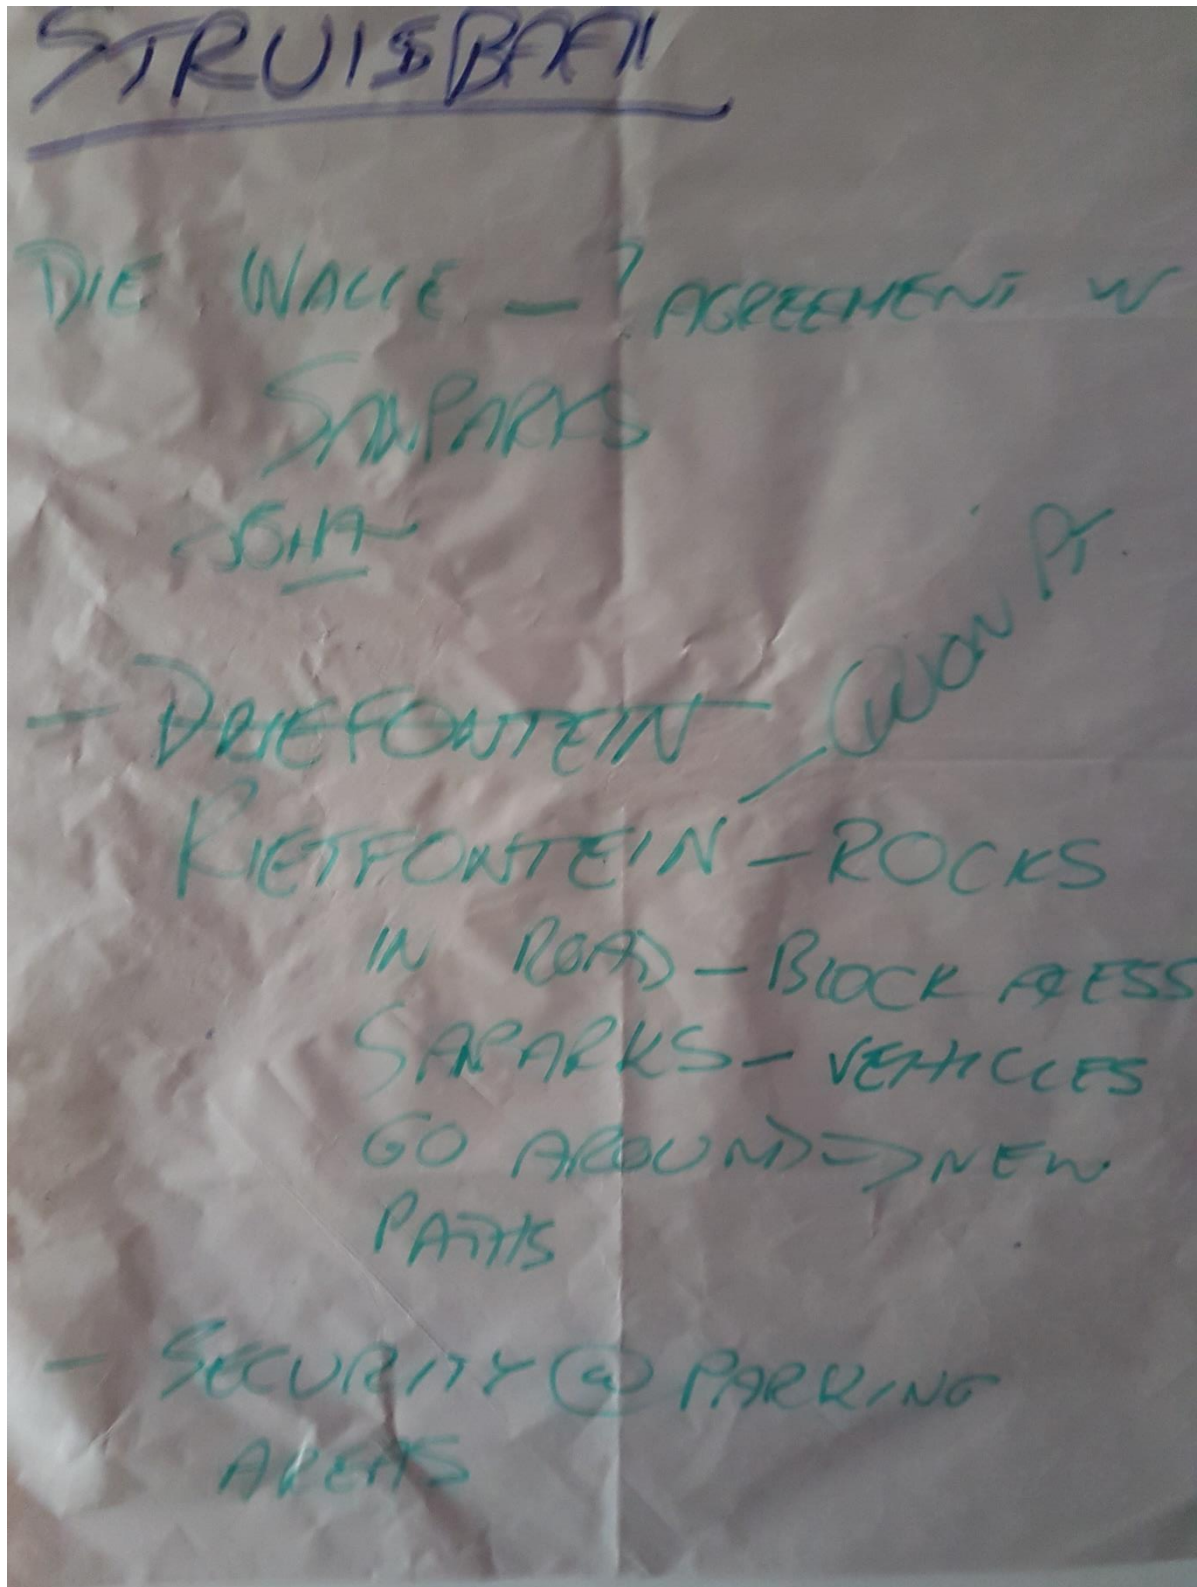 STRUISBAAI
DIE WALLE – ? AGREEMENT W
SANPARKS
JOHAN
– DRIEFONTEIN
QUOIN PT.
RIETFONTEIN – ROCKS
IN ROAD – BLOCK ACESS
SANPARKS – VEHICLES
GO AROUND => NEW
PATHS
– SECURITY @ PARKING
AREAS